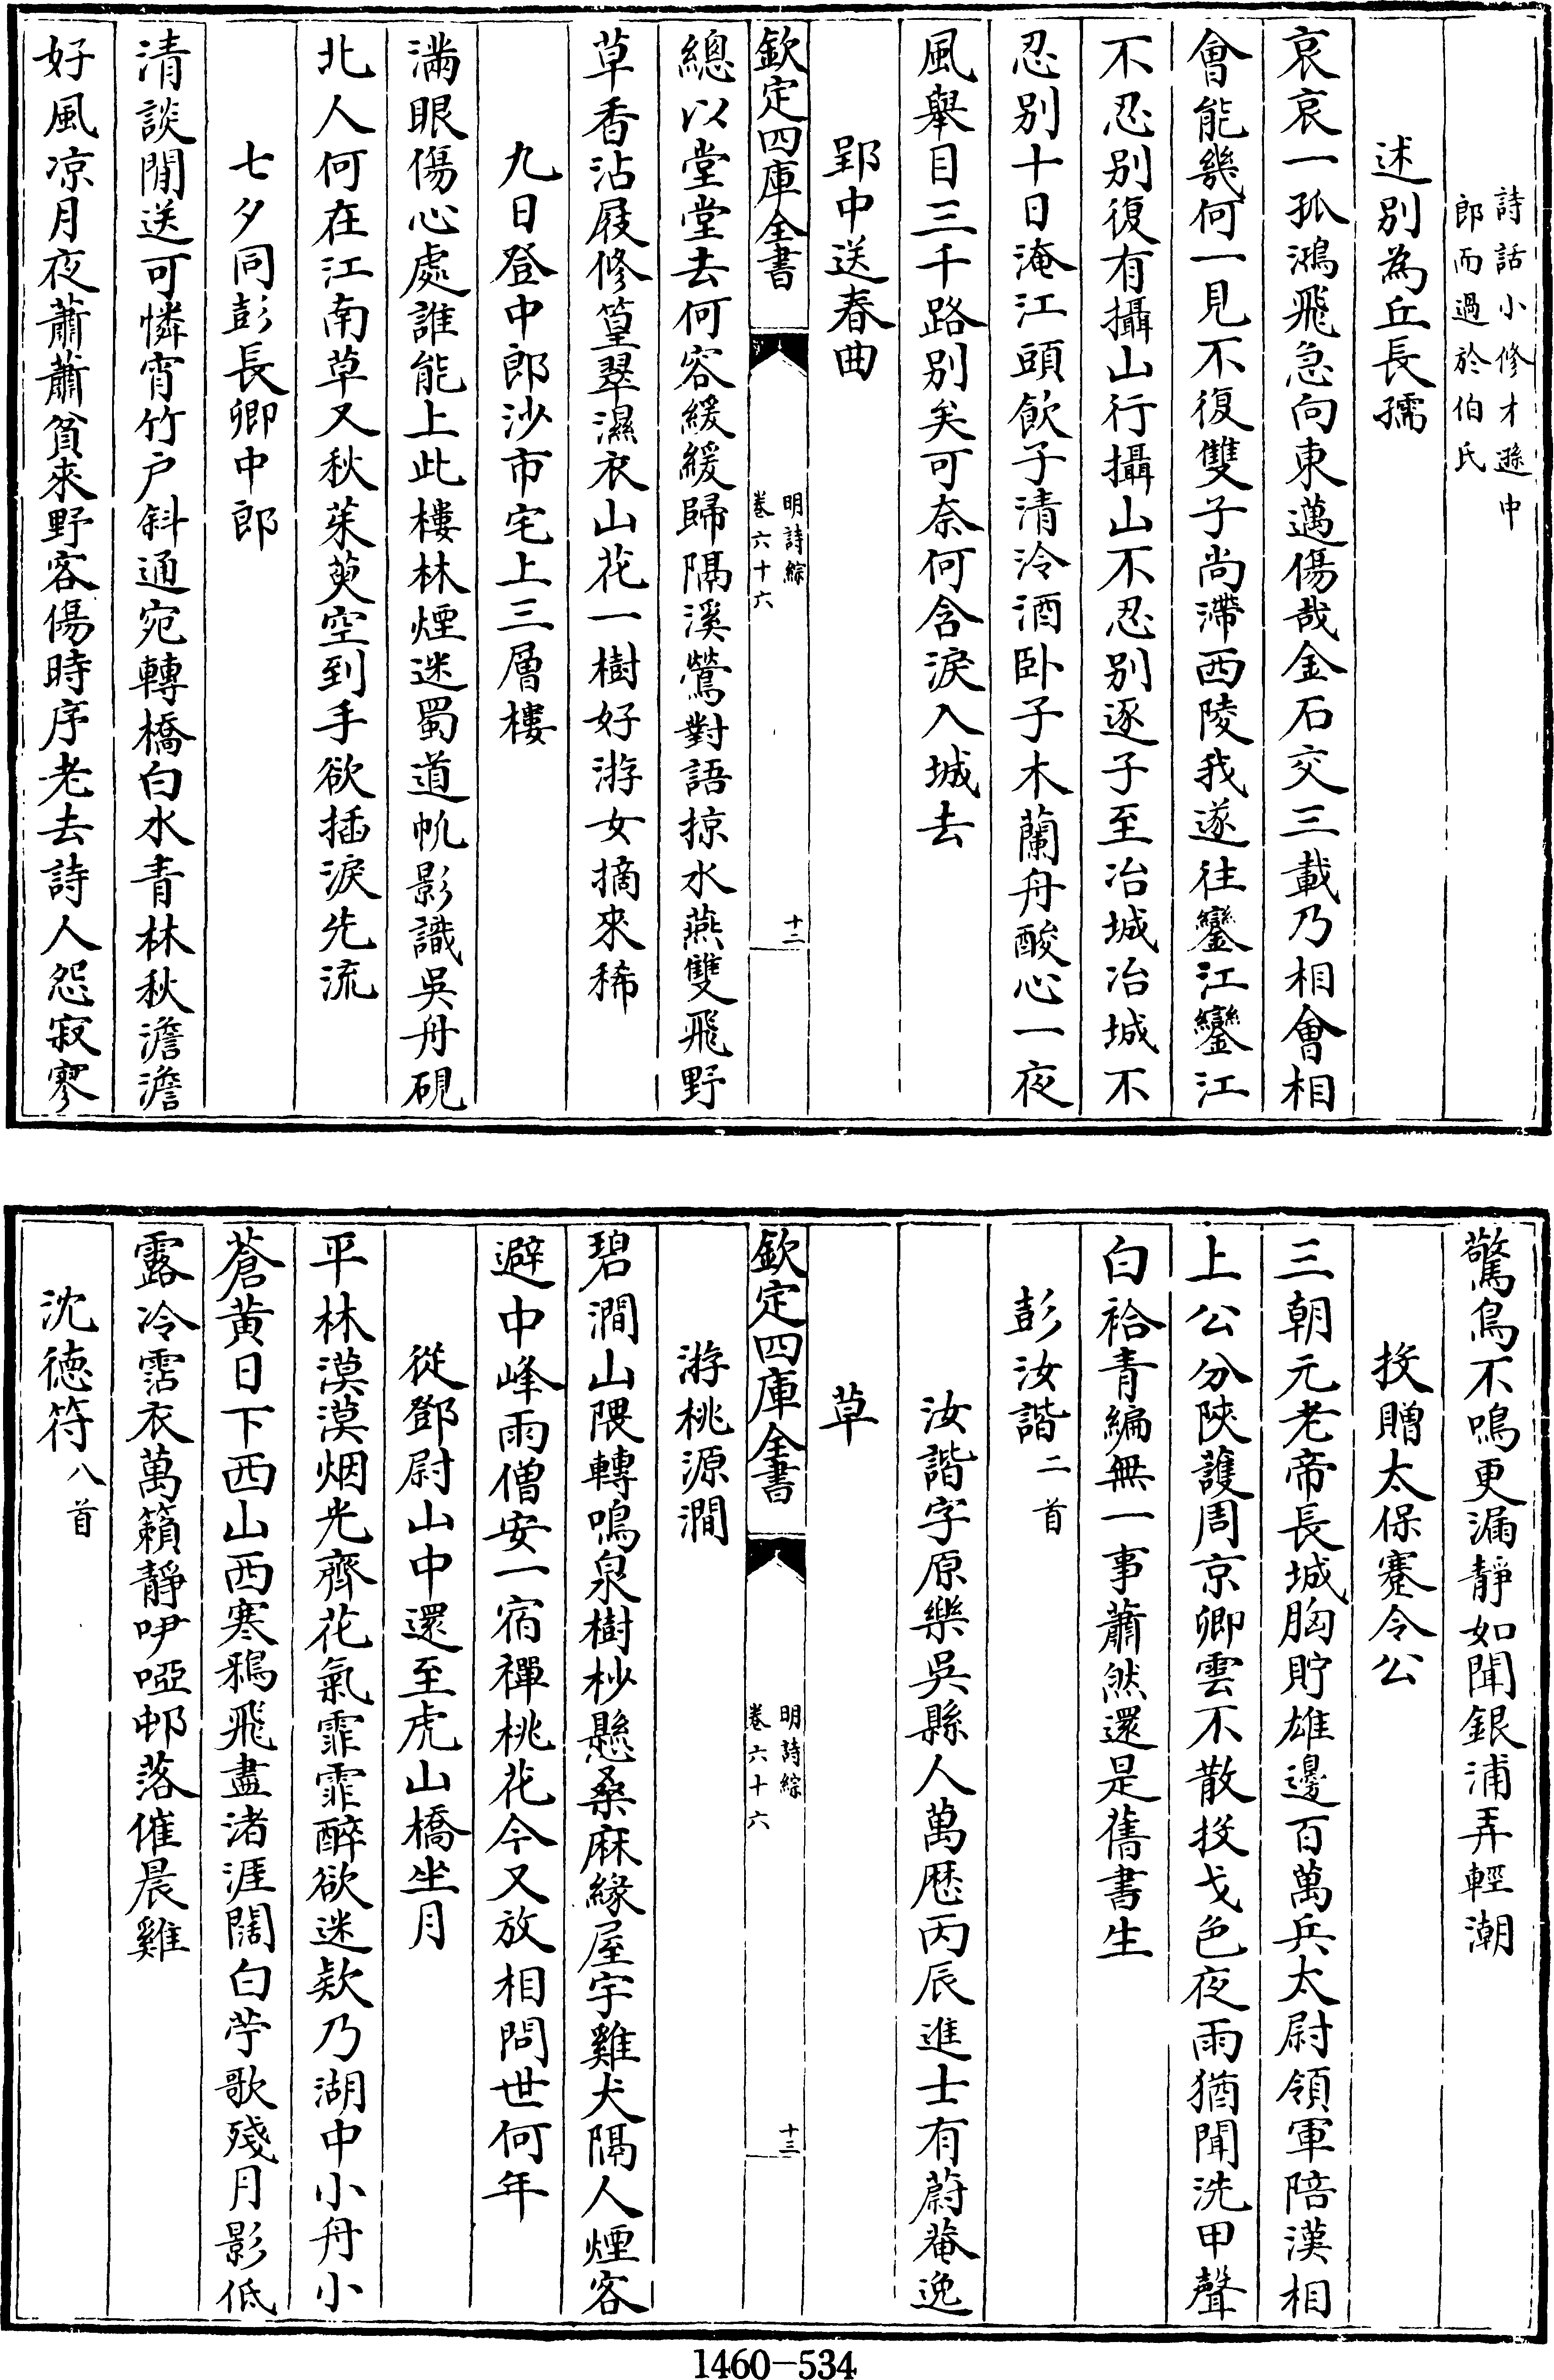 詩話小修才遜中
郎而過於伯氏
述别為丘長孺
哀哀一孤鴻飛急向東邁傷哉金石交三載乃相會相
會能幾何一見不復雙子尚滯西陵我遂往鑾江鑾江
不忍别復有攝山行攝山不忍别逐子至冶城冶城不
忍别十日淹江頭飲子清泠酒卧子木蘭舟酸心一夜
風舉目三千路别矣可奈何含淚入城去
郢中送春曲
欽定四庫全書
明詩綜
卷六十六
十二
總以堂堂去何容緩緩歸隔溪鶯對語掠水燕雙飛野
草香沾屐修篁翠濕衣山花一樹好游女摘來稀
九日登中郎沙市宅上三層樓
滿眼傷心處誰能上此樓林煙迷蜀道帆影識吳舟硯
北人何在江南草又秋茱萸空到手欲插淚先流
七夕同彭長卿中郎
清談閒送可憐宵竹户斜通宛轉橋白水青林秋澹澹
好風凉月夜蕭蕭貧來野客傷時序老去詩人怨寂寥
驚鳥不鳴更漏靜如聞銀浦弄輕潮
投贈太保蹇令公
三朝元老帝長城胸貯雄邊百萬兵太尉領軍陪漢相
上公分陜護周京卿雲不散投戈色夜雨猶聞洗甲聲
白袷青編無一事蕭然還是舊書生
彭汝諧二首
汝諧字原樂吳縣人萬歴丙辰進士有蔚菴逸
草
欽定四庫全書
明詩綜
卷六十六
十三
游桃源澗
碧澗山隈轉鳴泉樹杪懸桑麻緣屋宇雞犬隔人煙客
避中峰雨僧安一宿禪桃花今又放相問世何年
從鄧尉山中還至虎山橋坐月
平林漠漠烟光齊花氣霏霏醉欲迷欵乃湖中小舟小
蒼黄日下西山西寒鴉飛盡渚涯闊白苧歌殘月影低
露冷霑衣萬籟靜咿啞邨落催晨雞
沈德符八首
1460-534